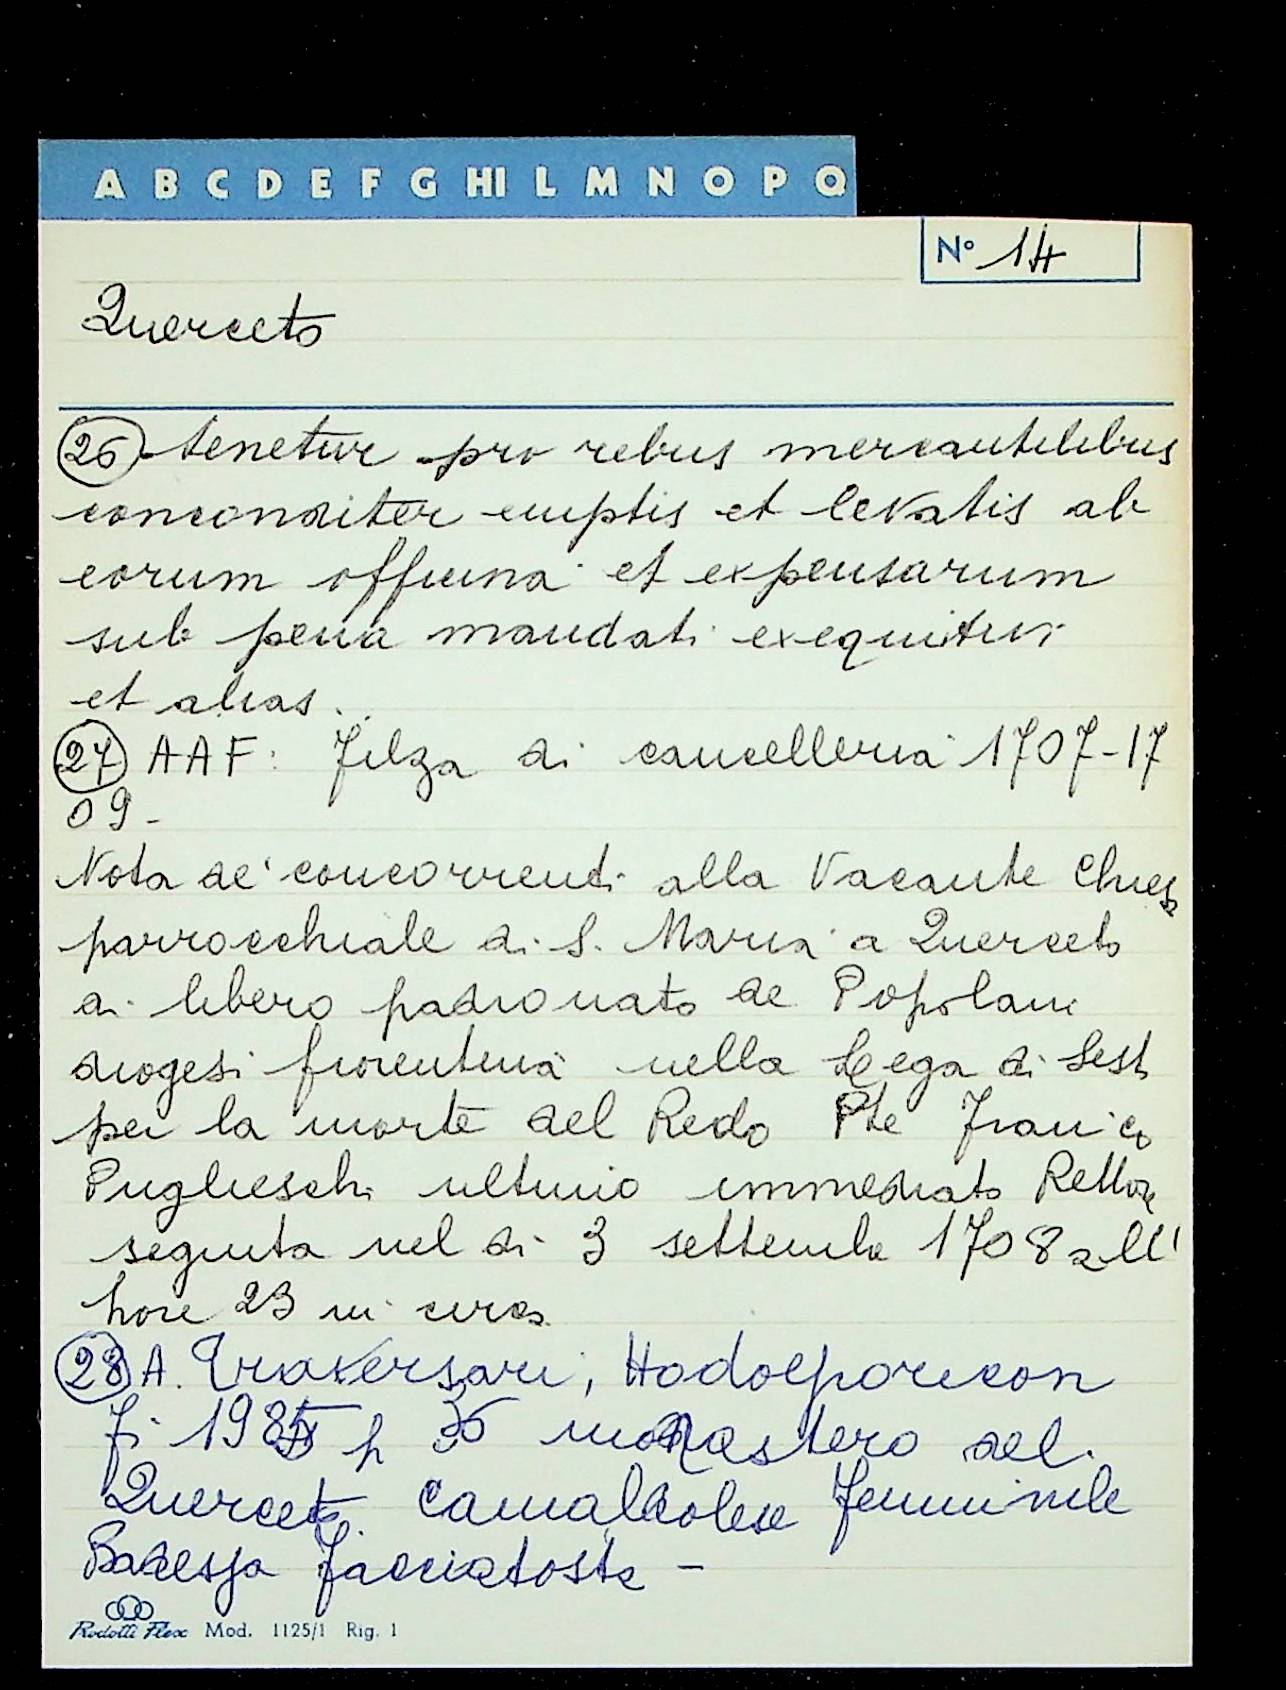 A B C D E F G HI L M N O P Q
N° 14
Querceto
26 tenetur pro rebus mercantilibus
conconditer emptis et levatis ab
eorum officina et expensarum
sub pena mandati exequitivi
et alias.
27 AAF: Filza di cancelleria 1707-17
09-
Nota de' concorrenti alla Vacante Chiesa
parrocchiale di S. Maria a Querceto
di libero padronato de Popolani
diogesi fiorentina nella Lega di Sesto
per la morte del Redo Pte Franco
Puglieschi ultimo immediato Rettore
seguita nel dì 3 settembre 1708 all'
hore 23 in circa
28 A. Traversari, Hodoeporicon
Fi 1985 p 36 monastero del
Querceto. Camaldolese femminile
Badessa Facciatosta -
Rodotti Flex Mod. 1125/1 Rig. 1